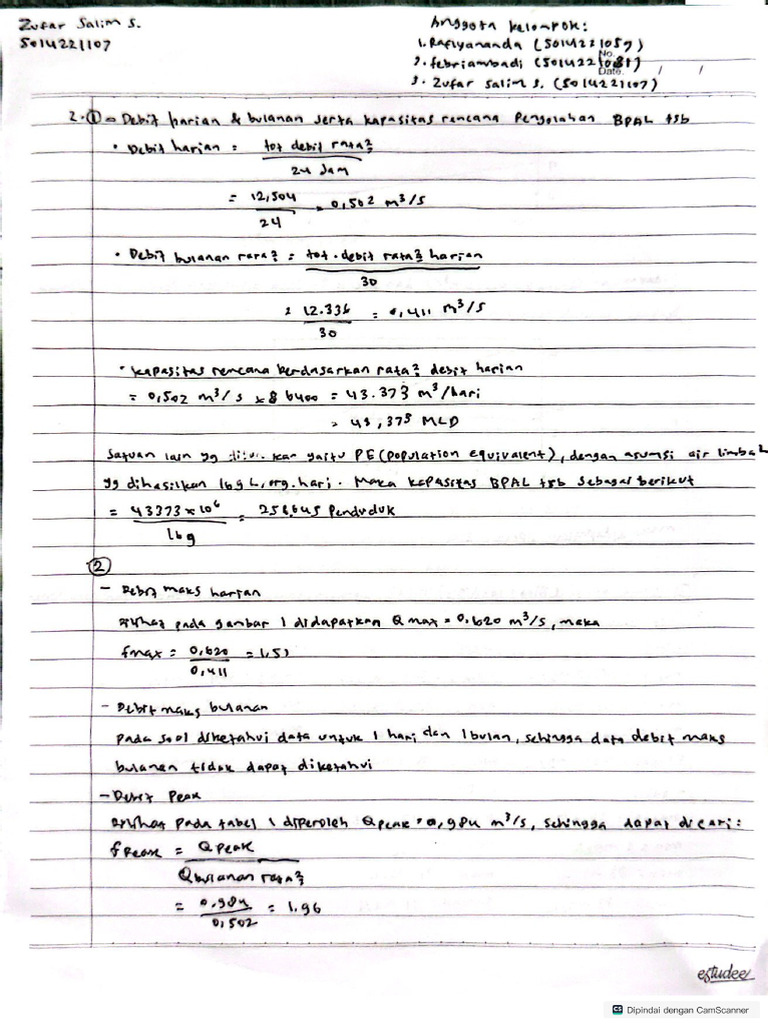 Zufar Salim S.
5014221107
Anggota kelompok:
1. Rafiyananda (5014221059)
2. febriambadi (5014221081)
3. Zufar Salim S. (5014221107)
No.
Date. / /
2. ① = Debit harian & bulanan serta kapasitas rencana Pengolahan BPAL tsb
• Debit harian = tot debit rata²
24 Jam
= 12,504
24
= 0,502 m³/s
• Debit bulanan rara² = tot. debit rata² harian
30
= 12.336
30
= 0,411 m³/s
• kapasitas rencana berdasarkan rata² debit harian
= 0,502 m³/s × 86400 = 43.373 m³/hari
= 43,375 MLD
Satuan lain yg kan yaitu PE (population equivalent), dengan asumsi air limbah
yg dihasilkan 169 L/org.hari. Maka kapasitas BPAL tsb sebagai berikut
= 43373 × 10⁶
169
= 256.645 Penduduk
②
- Debit maks harian
Dilihat pada gambar 1 didapatkan Q max = 0.620 m³/s, maka
fmax = 0,620
0,411
= 1,51
- Debit maks bulanan
pada soal diketahui data untuk 1 hari dan 1 bulan, sehingga data debit maks
bulanan tidak dapat diketahui
- Debit Peak
Dilihat pada tabel 1 diperoleh Qpeak = 0,984 m³/s, sehingga dapat dicari:
fPeak = Q Peak
Qbulanan rata²
= 0,984
0,502
= 1.96
estudee
CS Dipindai dengan CamScanner